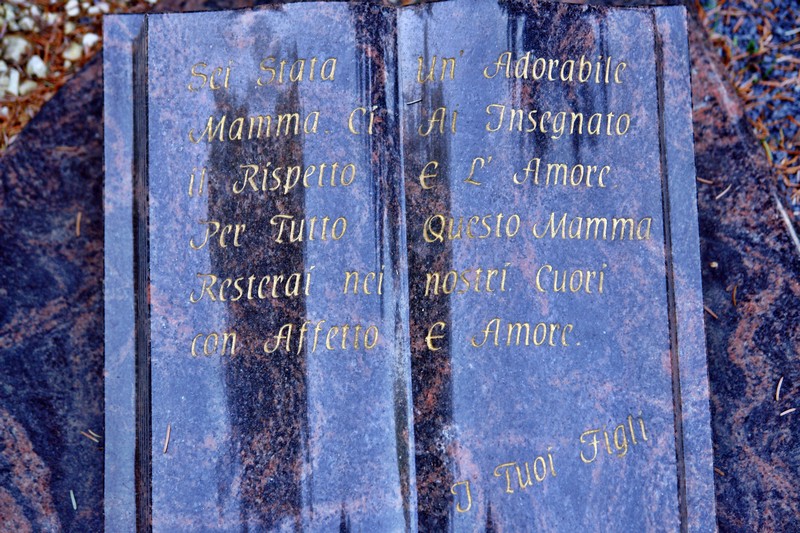 Sei Stata Un' Adorabile
Mamma Ci Ai Insegnato
il Rispetto E L' Amore.
Per Tutto Questo Mamma
Resterai nei nostri Cuori
con Affetto E Amore.
I Tuoi Figli